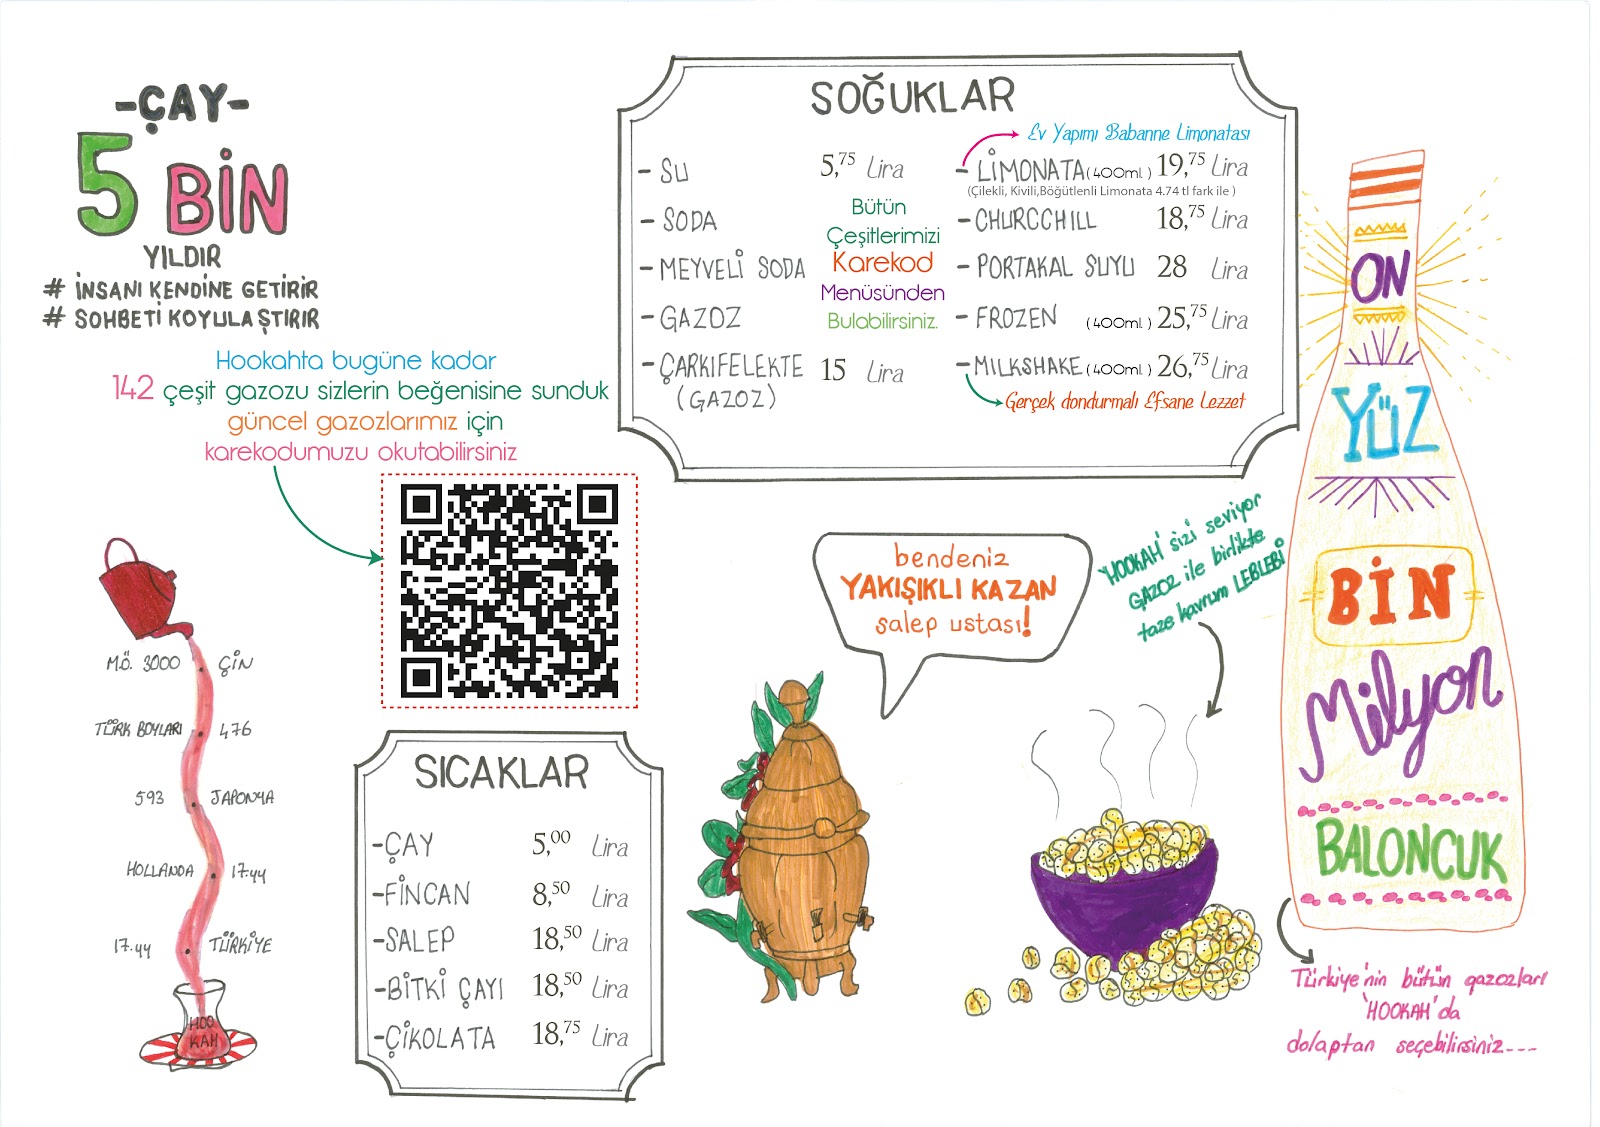 -ÇAY-
5 BİN
YILDIR
# İNSANI KENDİNE GETİRİR
# SOHBETİ KOYULAŞTIRIR
Hookahta bugüne kadar
142 çeşit gazozu sizlerin beğenisine sunduk
güncel gazozlarımız için
karekodumuzu okutabilirsiniz
M.Ö. 3000 ÇİN
TÜRK BOYLARI 476
593 JAPONYA
HOLLANDA 17.yy
17.yy TÜRKİYE
HOO
KAH
SOĞUKLAR
- SU 5,75 Lira
- SODA
- MEYVELİ SODA
- GAZOZ
- ÇARKIFELEKTE 15 Lira
(GAZOZ)
Bütün
Çeşitlerimizi
Karekod
Menüsünden
Bulabilirsiniz.
Ev Yapımı Babanne Limonatası
- LİMONATA (400ml.) 19,75 Lira
(Çilekli, Kivili,Böğütlenli Limonata 4.74 tl fark ile )
- CHURCCHILL 18,75 Lira
- PORTAKAL SUYU 28 Lira
- FROZEN (400ml.) 25,75 Lira
- MILKSHAKE (400ml.) 26,75 Lira
Gerçek dondurmalı Efsane Lezzet
SICAKLAR
-ÇAY 5,00 Lira
-FİNCAN 8,50 Lira
-SALEP 18,50 Lira
-BİTKİ ÇAYI 18,50 Lira
-ÇİKOLATA 18,75 Lira
bendeniz
YAKIŞIKLI KAZAN
salep ustası!
'HOOKAH' sizi seviyor
GAZOZ ile birlikte
taze kavrum LEBLEBİ
ON
YÜZ
BİN
Milyon
BALONCUK
Türkiye'nin bütün gazozları
'HOOKAH'da
dolaptan seçebilirsiniz---